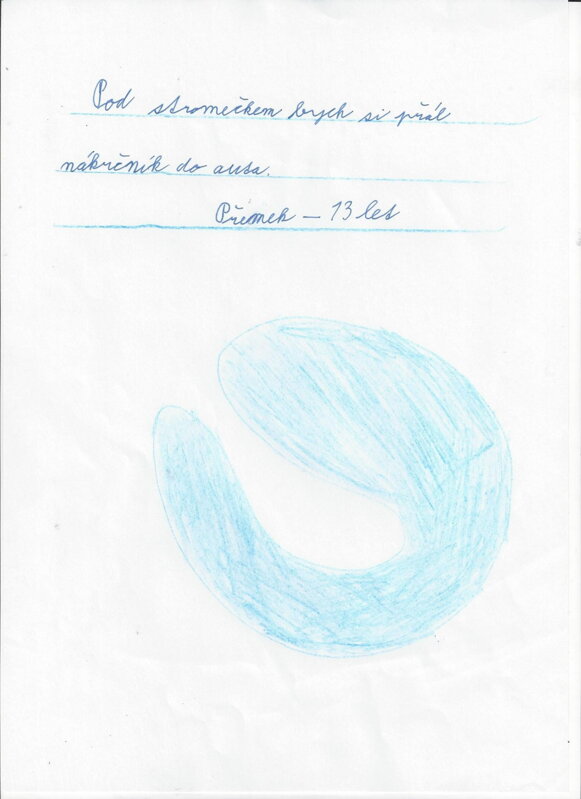 Pod stromečkem bych si přál
nákrčník do auta.
Přemek – 13 let